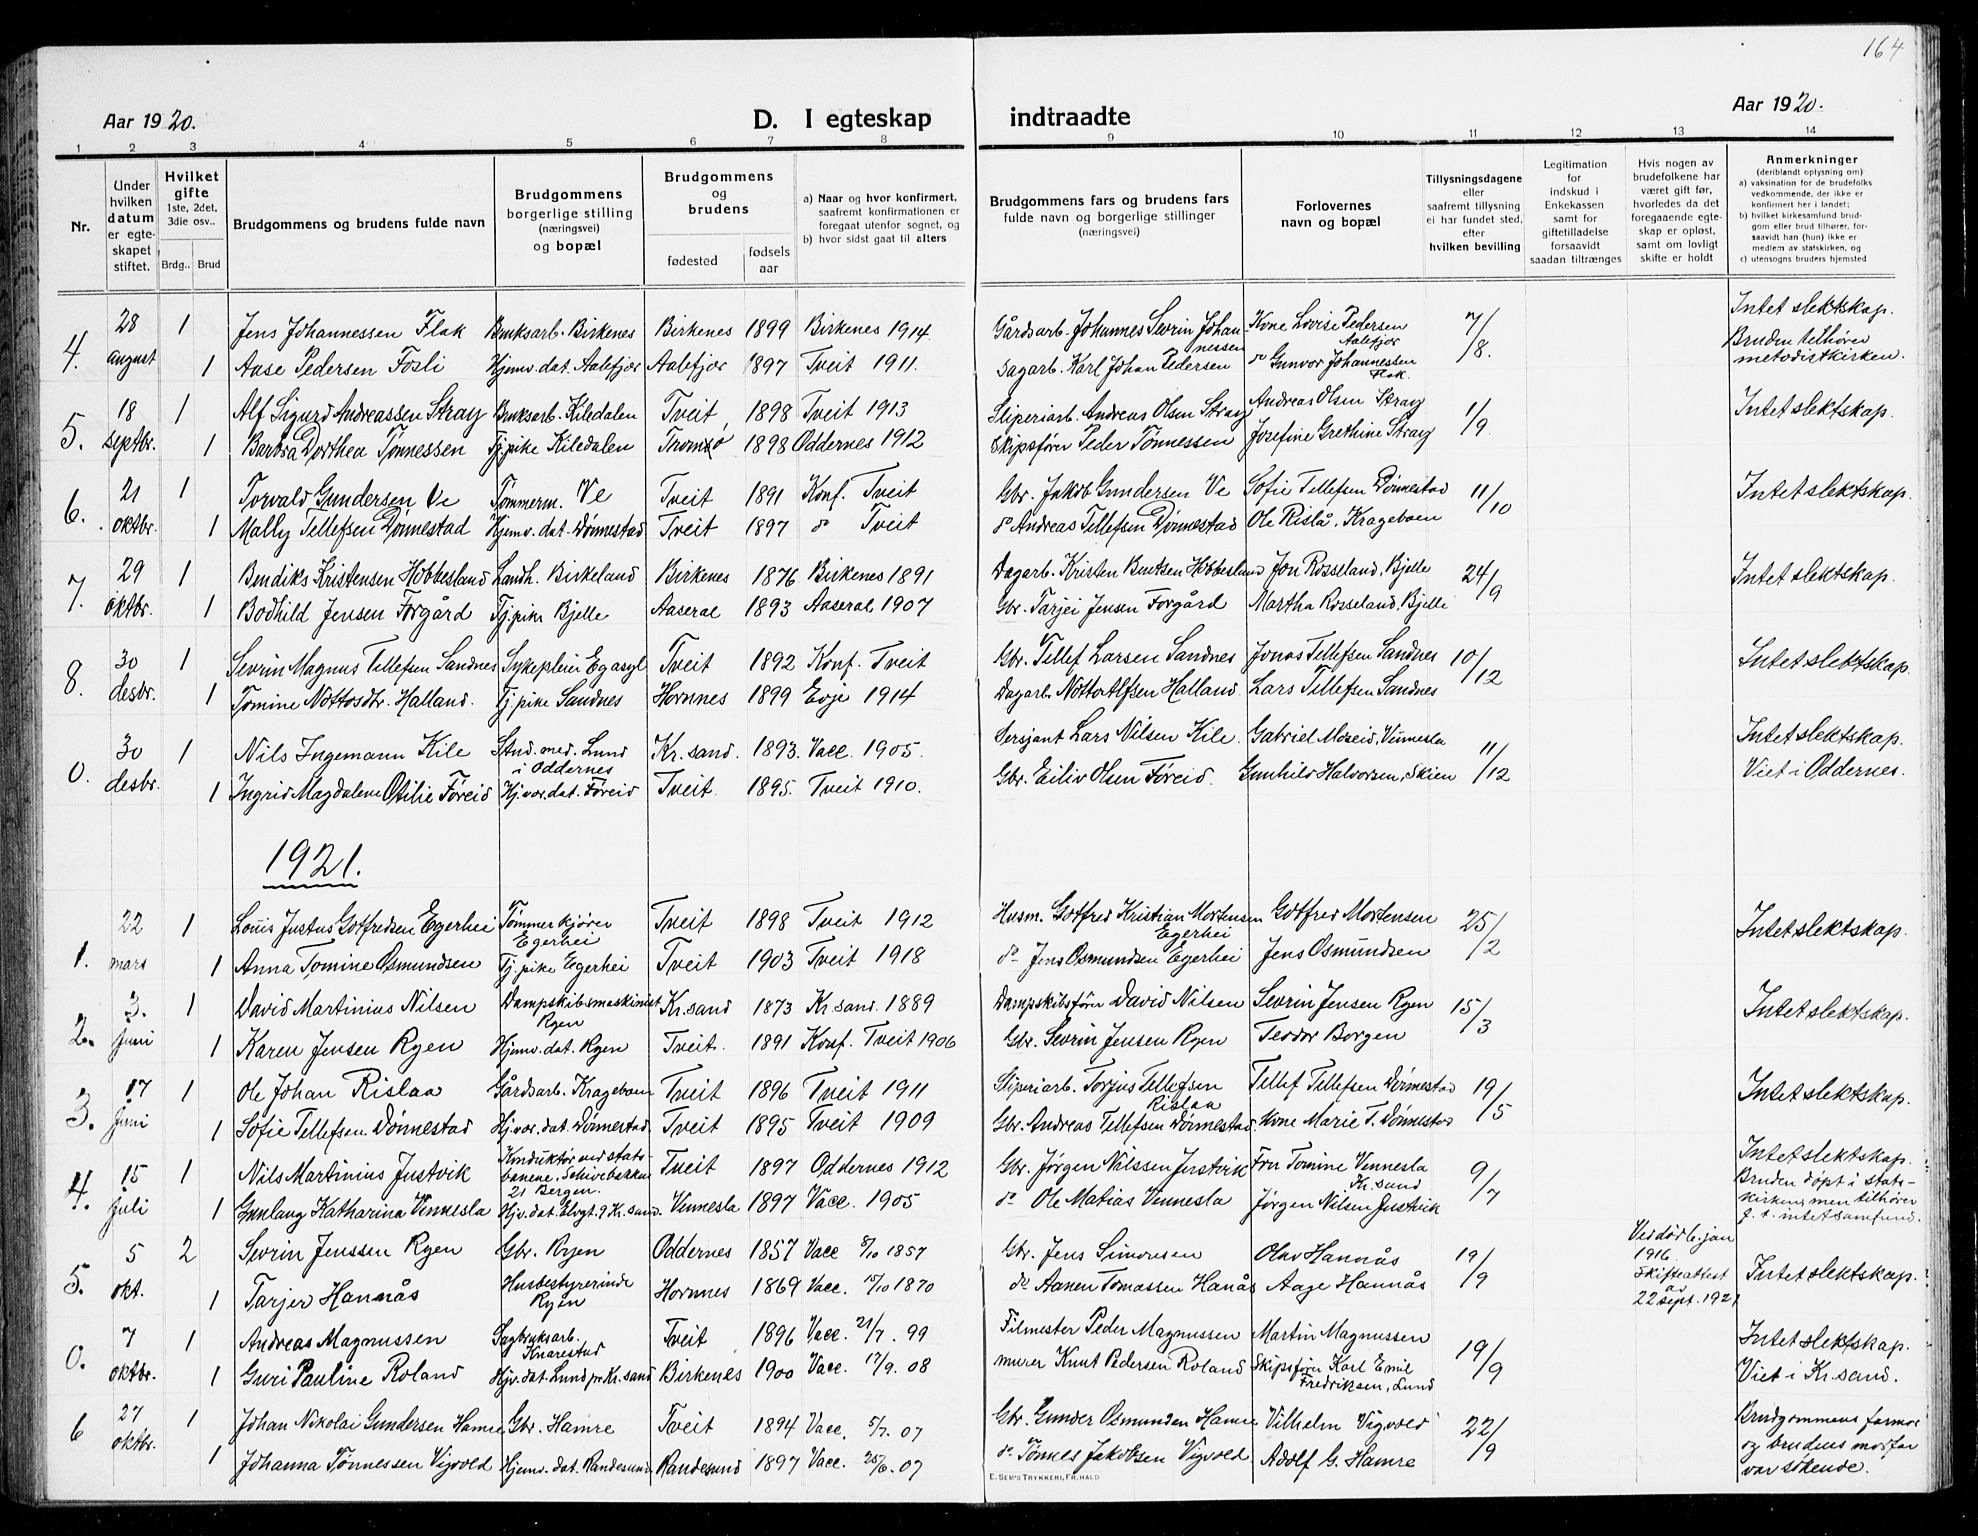 164
Aar 1920.
D. I egteskap indtraadte
Aar 1920.
1 2 3 4 5 6 7 8 9 10 11 12 13 14
Nr.
Under hvilken datum er egteskapet stiftet.
Hvilket gifte 1ste, 2det, 3die osv..
Brdg.. Brud
Brudgommens og brudens fulde navn
Brudgommens borgerlige stilling (næringsvei) og bopæl
Brudgommens og brudens
fødested
fødsels aar
a) Naar og hvor konfirmert, saafremt konfirmationen er foregaat utenfor sognet, og
b) hvor sidst gaat til alters
Brudgommens fars og brudens fars fulde navn og borgerlige stillinger (næringsvei)
Forlovernes navn og bopæl
Tillysningsdagene eller saafremt tillysning ei har fundet sted, efter hvilken bevilling
Legitimation for indskud i Enkekassen samt for giftetilladelse forsaavidt saadan tiltrænges
Hvis nogen av brudefolkene har været gift før, hvorledes da det foregaaende egteskap er opløst, samt om lovligt skifte er holdt
Anmerkninger (deriblandt oplysning om)
a) vaksination for de brudefolks vedkommende, der ikke er konfirmert her i landet;
b) hvilket kirkesamfund brudgom eller brud tilhører, forsaavidt han (hun) ikke er medlem av statskirken, og
c) utensogns bruders hjemsted
4. 28 august 1 Jens Johannessen Flak Bruksarb. Birkenes Birkenes 1899 Birkenes 1914. Gårdsarb. Johannes Sevrin Johannessen Kone Lovise Pedersen Aalefjær 7/8. Intet slektskap.
1 Aase Pedersen Fosli Hjemv. dat. Aalefjær Aalefjær 1897 Tveit 1911. Sagarb. Karl Johan Pedersen do Gunvor Johannessen Flak. Bruden tilhører metodistkirken.
5. 18 septbr. 1 Alf Sigurd Andreassen Stray Bruksarb. Kiledalen Tveit 1898 Tveit 1913 Sliperiarb. Andreas Olsen Stray Andreas Olsen Stray 1/9. Intet slektskap.
1 Barbra Dorthea Tønnessen Tj.pike Kiledalen Tromsø 1898 Oddernes 1912 Skipsfører Peder Tønnessen Josefine Grethine Stray
6. 21 oktbr. 1 Torvald Gundersen Ve Tømmerm. Ve Tveit 1891 Konf. Tveit Gbr. Jakob Gundersen Ve Sofie Tellefsen Dønnestad 11/10 Intet slektskap.
1 Mally Tellefsen Dønnestad Hjemv. dat. Dønnestad Tveit 1897 do Tveit do Andreas Tellefsen Dønnestad Ole Rislå, Krageboen
7. 29 oktbr. 1 Bendiks Kristensen Hobbesland Landh. Birkeland Birkenes 1876 Birkenes 1891 Dagarb. Kristen Bentsen Hobbesland Jon Rosseland, Bjelle 24/9 Intet slektskap.
1 Bodhild Jensen Forgård Tj.pike Bjelle Aaseral 1893 Aaseral 1907 Gbr. Tarjei Jensen Forgård Martha Rosseland, Bjelle
8. 30 desbr. 1 Sevrin Magnus Tellefsen Sandnes Sykepleier Egasyl Tveit 1892 Konf. Tveit Gbr. Tellef Larsen Sandnes Jonas Tellefsen Sandnes 10/12 Intet slektskap
1 Tomine Nottosdtr. Halland. Tj.pike Sandnes Hornnes 1899 Evje 1914 Dagarb. Notto Alfsen Halland. Lars Tellefsen Sandnes
0. 30 desbr. 1 Nils Ingemann Kile Stud. med. Lund i Oddernes Kr.sand. 1893. Vacc. 1905. Sersjant Lars Nilsen Kile. Gabriel Moseid, Vennesla 11/12 Intet slektskap.
1 Ingrid Magdalene Otilie Føreid Hj.vær. dat. Føreid Tveit. 1895. Tveit 1910. Gbr. Eiliv Olsen Føreid. Gunhild Halvorsen, Skien Viet i Oddernes.
1921.
1. 22 mars 1 Louis Justus Gotfredsen Egerhei Tømmerkjører Egerhei Tveit 1898 Tveit 1912 Husm. Gotfred Kristian Mortensen Egerhei Gotfred Mortensen 25/2 Intet slektskap.
1 Anna Tomine Osmundsen Tj.pike Egerhei Tveit 1903 Tveit 1918 do Jens Osmundsen Egerhei Jens Osmundsen
2. 3. Juni 1 David Martinius Nilsen Dampskibsmaskinist Ryen Kr.sand 1873 Kr.sand. 1889 Dampskibsfører David Nilsen Sevrin Jensen Ryen 15/3 Intet slektskap.
1 Karen Jensen Ryen Hjemv. dat. Ryen Tveit. 1891 Konf. Tveit 1906 Gbr. Sevrin Jensen Ryen Teodor Borgen
3. 17 Juni 1 Ole Johan Rislaa Gårdsarb. Krageboen Tveit 1896 Tveit 1911 Sliperiarb. Torjus Tellefsen Rislaa Tellef Tellefsen Dønnestad 19/5 Intet slektskap.
1 Sofie Tellefsen Dønnestad Hj.vær. dat. Dønnestad. Tveit 1895 Tveit 1909 Gbr. Andreas Tellefsen Dønnestad. Kone Marie T. Dønnestad
4. 15 Juli 1 Nils Martinius Justvik Konduktør ved statsbanene. Skivebakken 21 Bergen. Tveit 1897 Oddernes 1912 Gbr. Jørgen Nilssen Justvik Fru Tomine Vennesla Kr.sand 9/7 Intet slektskap.
1 Gunlaug Katharina Vennesla Hjv. dat. Elvgt. 7 Kr.sand. Vennesla 1897 Vacc. 1905 do Ole Matias Vennesla Jørgen Nilsen Justvik Bruden døpt i statskirken, men tilhører f. t. intet samfund.
5. 5 okt. 2 Sevrin Jenssen Ryen Gbr. Ryen Oddernes 1857 Vacc 8/10 1857 Gbr. Jens Simonsen Olav Hannås 19/9 Ved død 6. jan 1916. Skifteattest av 22 sept. 1921 Intet slektskap.
1 Tarjer Hannås Husbestyrerinde Ryen Hornnes 1869 Vacc. 15/10 1870 do Aanen Tomassen Hanås Aage Hannås
0. 7 oktbr. 1 Andreas Magnussen Sagbruksarb. Knarestad Tveit 1896 Vacc. 21/7. 99 Filmester Peder Magnussen Martin Magnussen 19/9 Intet slektskap.
1 Guri Pauline Roland Hjv. dat. Lund pr Kr.sand Birkenes 1900 Vacc. 17/9. 08 murer Knut Pedersen Roland Skipsfører Karl Emil Fredriksen, Lund Viet i Kr.sand.
6 27 oktbr. 1 Johan Nikolai Gundersen Hamre Gbr. Hamre Tveit 1894 Vacc. 5/7. 07 Gbr. Gunder Osmundsen Hamre Vilhelm Vigvold 22/9 Brudgommens farmor og brudens morfar var søkende.
1 Johanna Tønnessen Vigvold Hjemv. dat. Randesund Randesund 1897 Vacc. 25/6. 07 do Tønnes Jakobsen Vigvold. Adolf G. Hamre
E. SEM'S TRYKKERI, FR.HALD